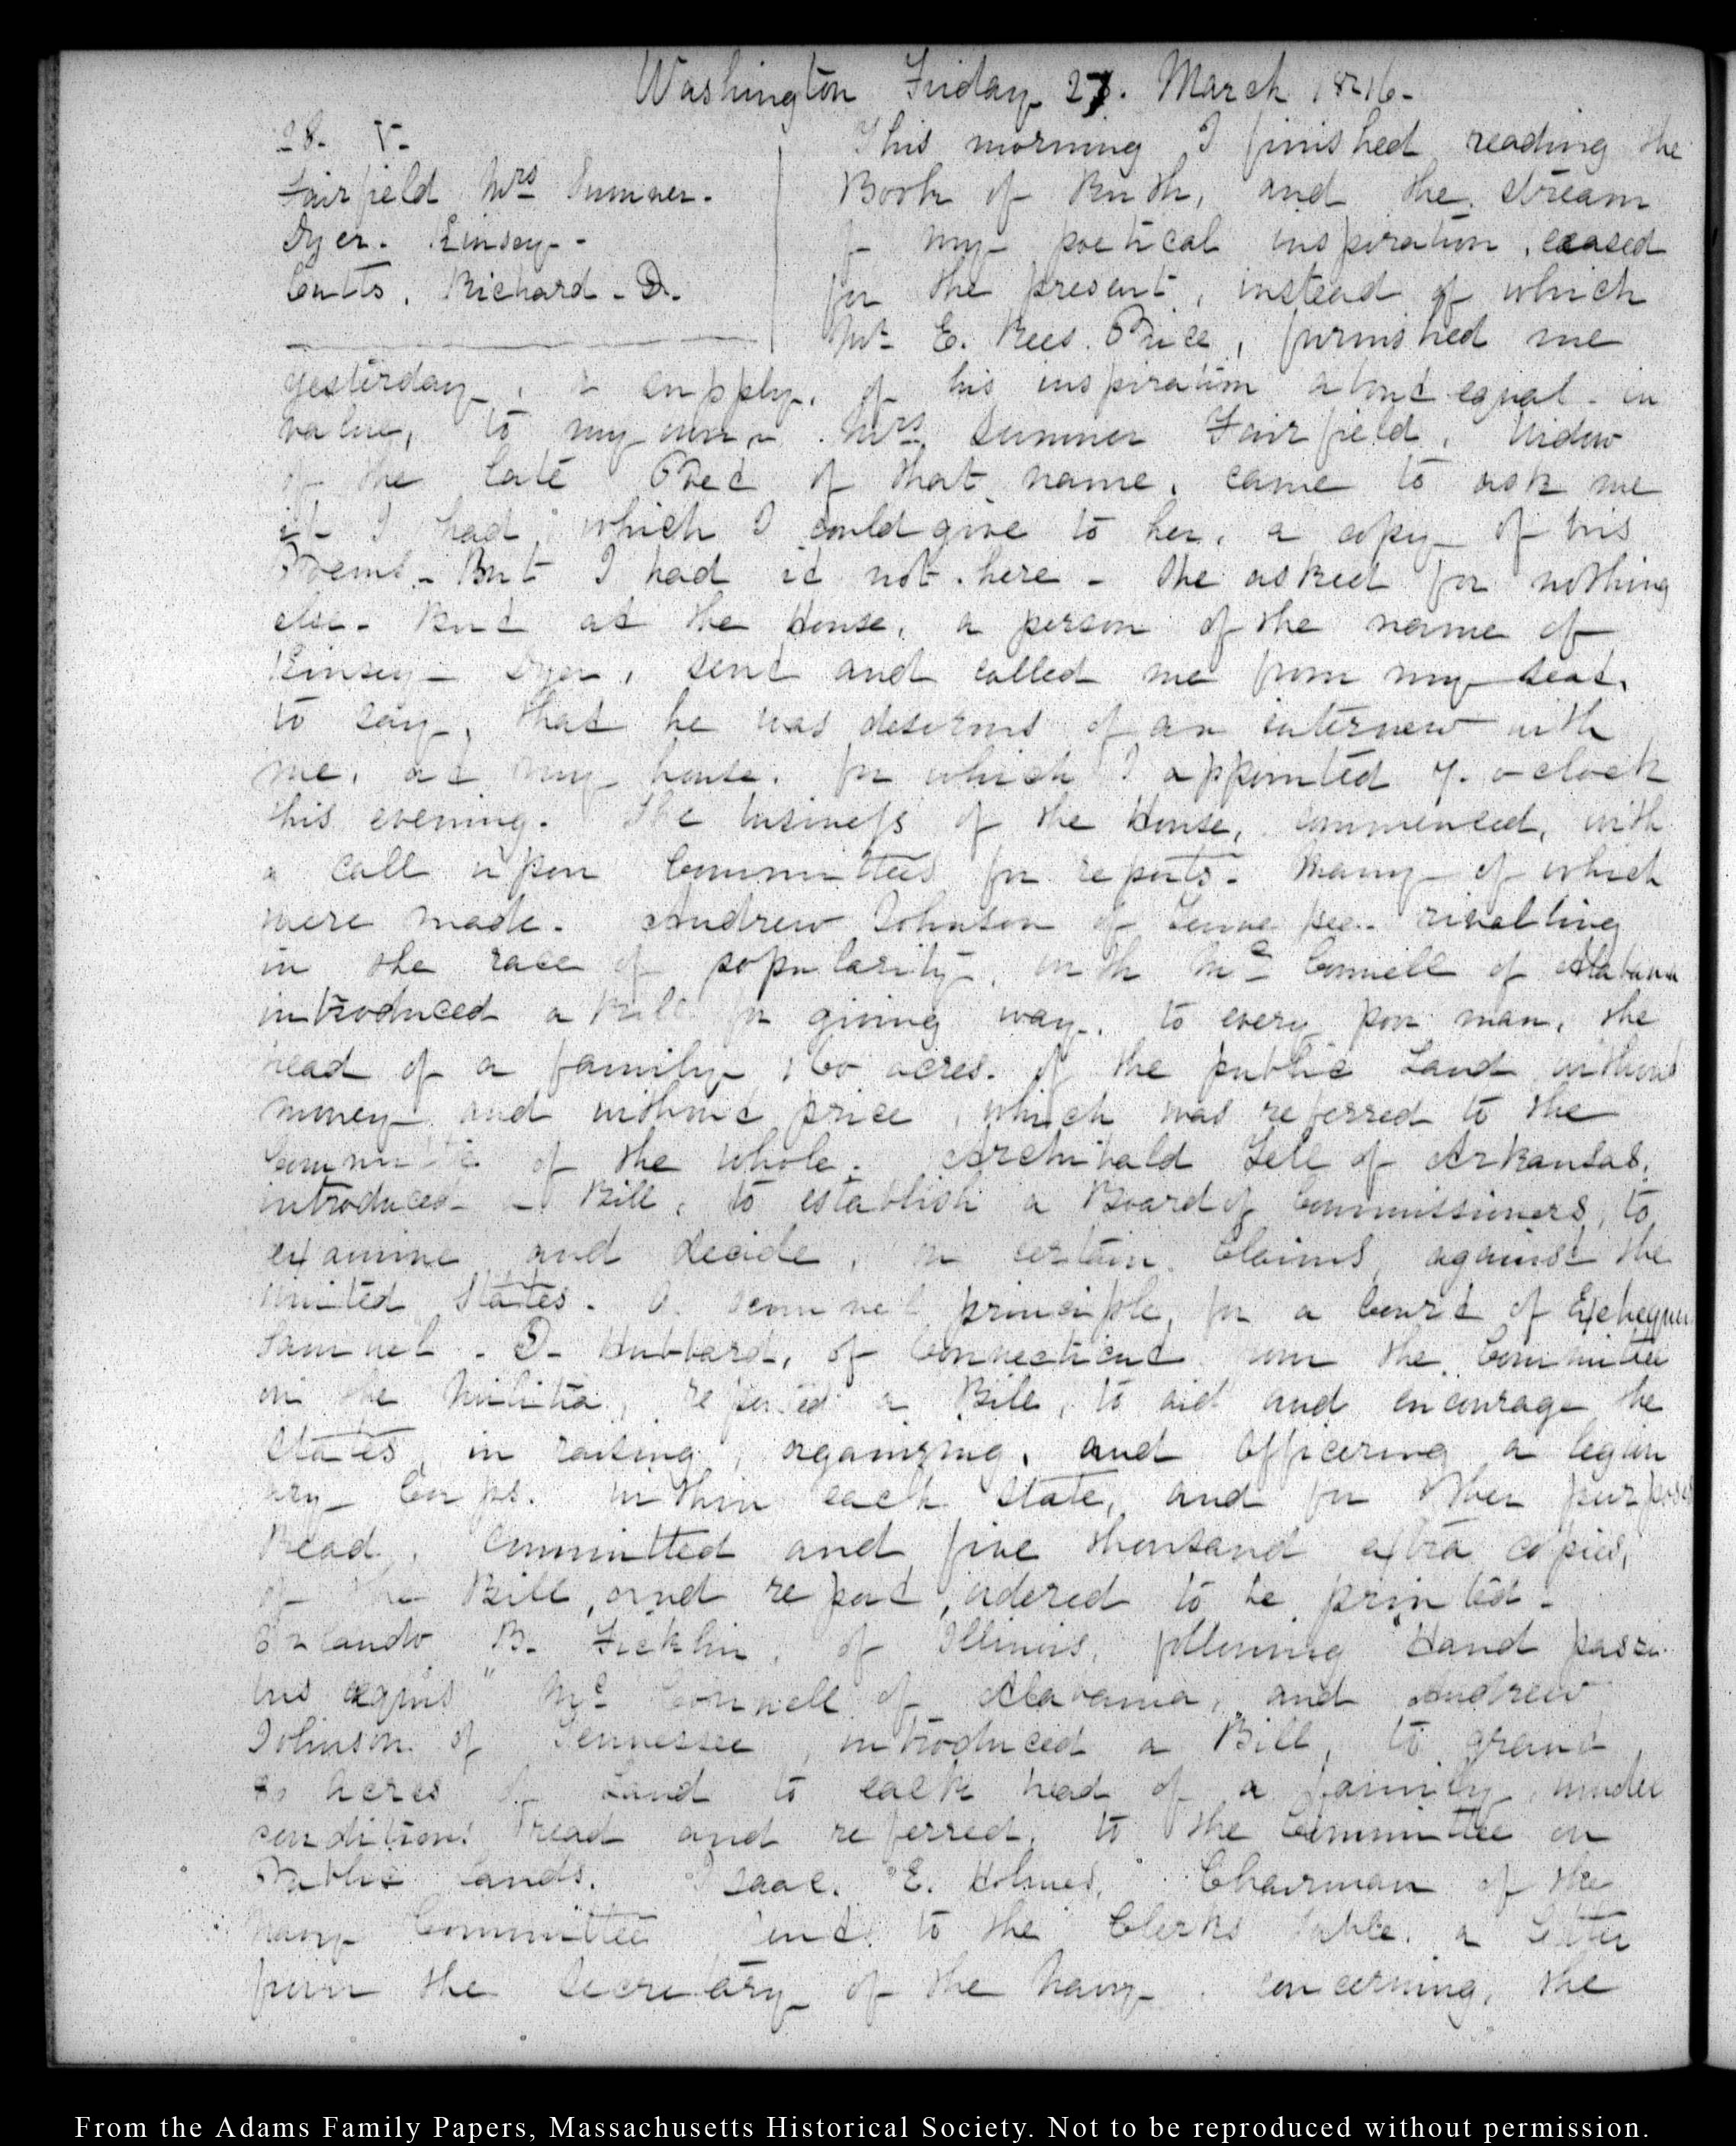 Washington Friday 27. March 1846-
28. V-
Fairfield Mrs Sumner.
Dyer. Kinsey-
Cutts, Richard. D.
This morning I finished reading the
Book of Ruth, and the stream
of my poetical inspiration, ceased
for the present, instead of which
Mr E. Rees Price, furnished me
yesterday, a supply, of his inspiration about equal in
value, to my own. Mrs Sumner Fairfield, Widow
of the late Poet of that name, came to ask me
if I had, which I could give to her, a copy of his
Poems- But I had it not here- She asked for nothing
else- But at the House, a person of the name of
Kinsey Dyer, sent and called me from my seat,
to say, that he was desirous of an interview with
me, at my house. for which I appointed 7. o-clock
this evening. The business of the House, commenced, with
a call upon Committees for reports- Many of which
were made. Andrew Johnson of Tennessee- rivalling
in the race of popularity, with Mc Connell of Alabama
introduced a Bill for giving way, to every poor man, the
head of a family 160 acres. of the public Land without
money and without price, which was referred to the
Committee of the whole. Archibald Yell of Arkansas,
introduced a Bill, to establish a Board of Commissioners, to
examine and decide, on certain Claims against the
United States. principle, for a Court of Exchequer
Samuel. D. Hubbard, of Connecticut from the Committee
on the Militia, reported a Bill, to aid and encourage the
States, in raising, organizing, and officering a legion
ary Corps. within each State, and for other purposes
Read, Committed and five thousand extra copies,
of the Bill, and report, ordered to be printed-
Orlando B. Ficklin, of Illinois, following "Haud passi-
bus æquis" Mc Connell of Alabama, and Andrew
Johnson of Tennessee, introduced a Bill, to grant
80 acres of Land to each head of a family, under
conditions read and referred, to the Committee on
Public Lands. Isaac. E. Holmes, Chairman of the
Navy Committee sent to the Clerks table, a Letter
from the Secretary of the Navy. concerning, the
From the Adams Family Papers, Massachusetts Historical Society. Not to be reproduced without permission.